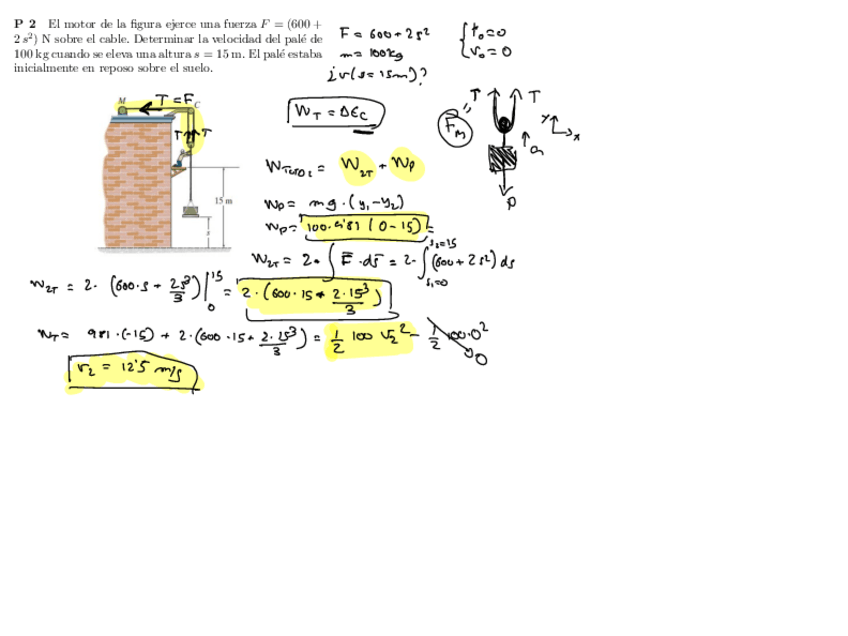 P 2 El motor de la figura ejerce una fuerza F = (600 +
2 s²) N sobre el cable. Determinar la velocidad del palé de
100 kg cuando se eleva una altura s = 15 m. El palé estaba
inicialmente en reposo sobre el suelo.
F = 600 + 2s²
m = 100kg
¿v(s=15m)?
{ t₀=0
v₀=0
M
T = F
C
T T
15 m
s
W_T = ΔE_C
T T
"
F_M
y
x
a
P
W_TOTAL = W_2T + W_P
W_P = mg·(y₁-y₂)
W_P = 100·9'81 (0-15)
W_2T = 2·∫F̄·ds̄ = 2·∫_{s₁=0}^{s₂=15}(600+2s²)ds
W_2T = 2·(600·s + 2s³/3)|₀¹⁵ = 2·(600·15 + 2·15³/3)
W_T = 981·(-15) + 2·(600·15 + 2·15³/3) = 1/2 100 v₂² - 1/2 100·0²
0
v₂ = 12'5 m/s